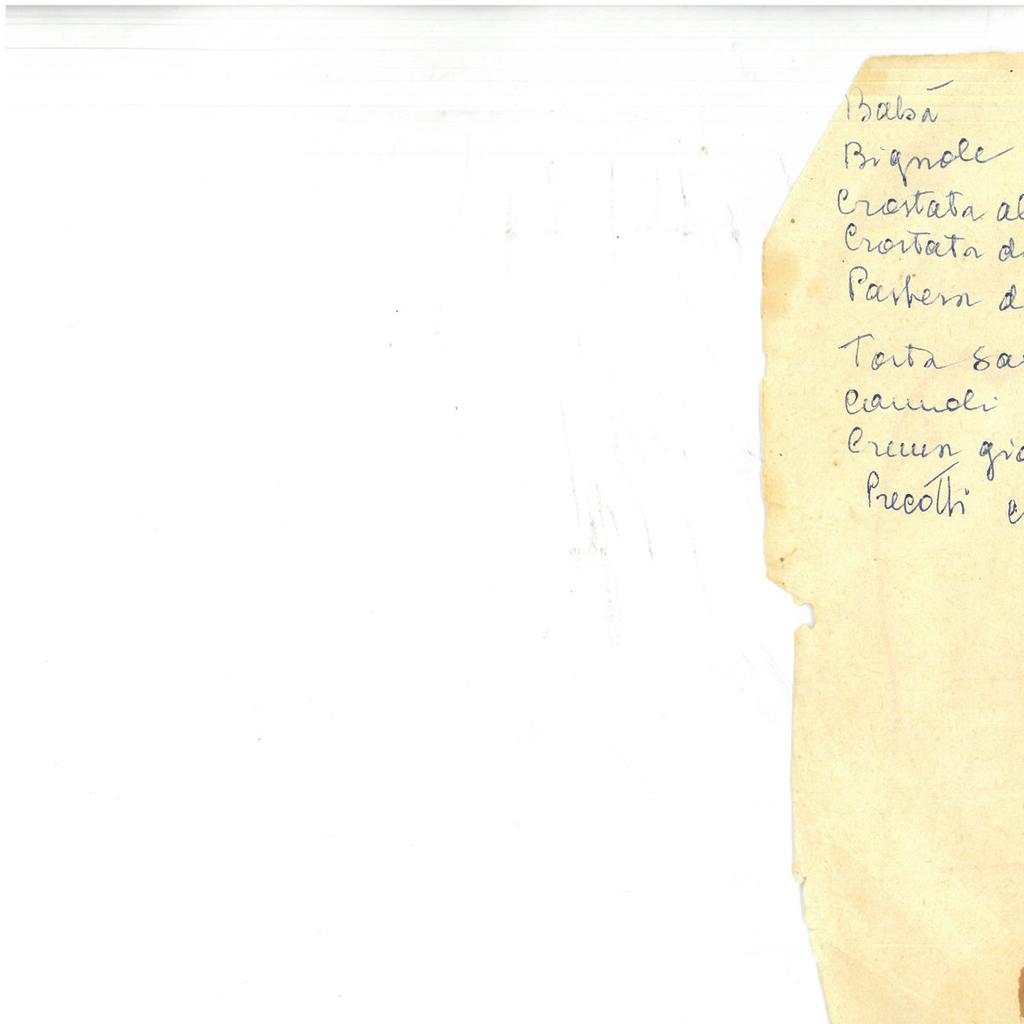 Babà
Bignole
Crostata al
Crostata di
Pastiera d
Torta sa
Cannoli
Crema gia
Precotti c